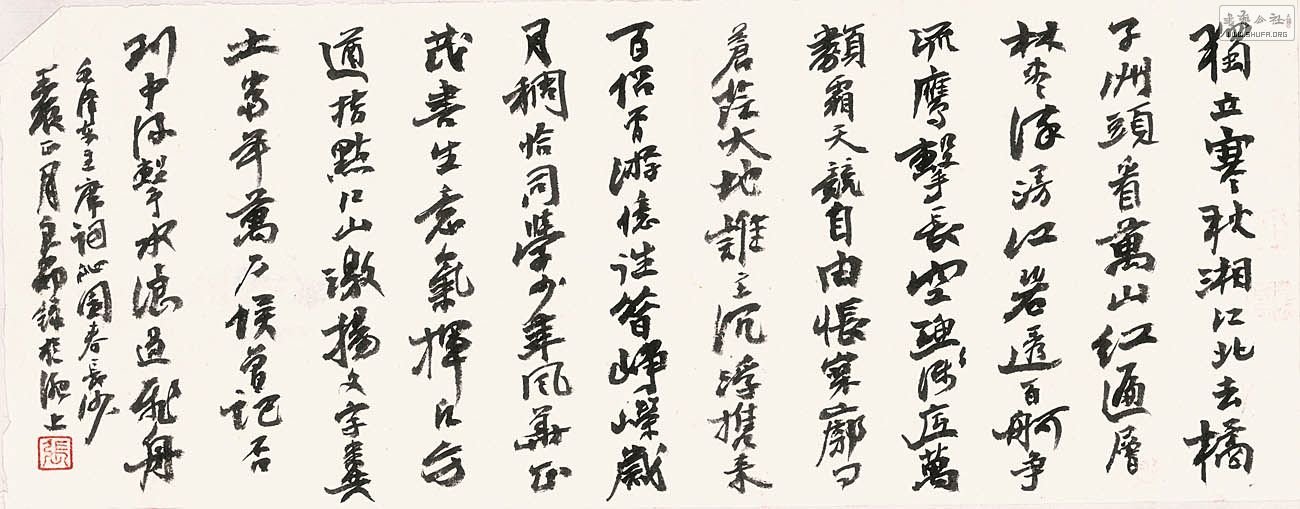 獨立寒秋湘江北去橘
子洲頭看萬山紅遍層
林尽染漫江碧透百舸争
流鷹擊長空魚翔浅底萬
類霜天競自由悵寥廓问
蒼茫大地誰主沉浮携来
百侣曾游憶往昔崢嶸歲
月稠恰同學少年風華正
茂書生意氣揮斥方
遒指點江山激揚文字糞
土當年萬户侯曾記否
到中流擊水浪遏飛舟
毛澤东主席詞沁園春長沙
壬辰正月良錄於滬上
張
書法公社
WWW.SHUFA.ORG